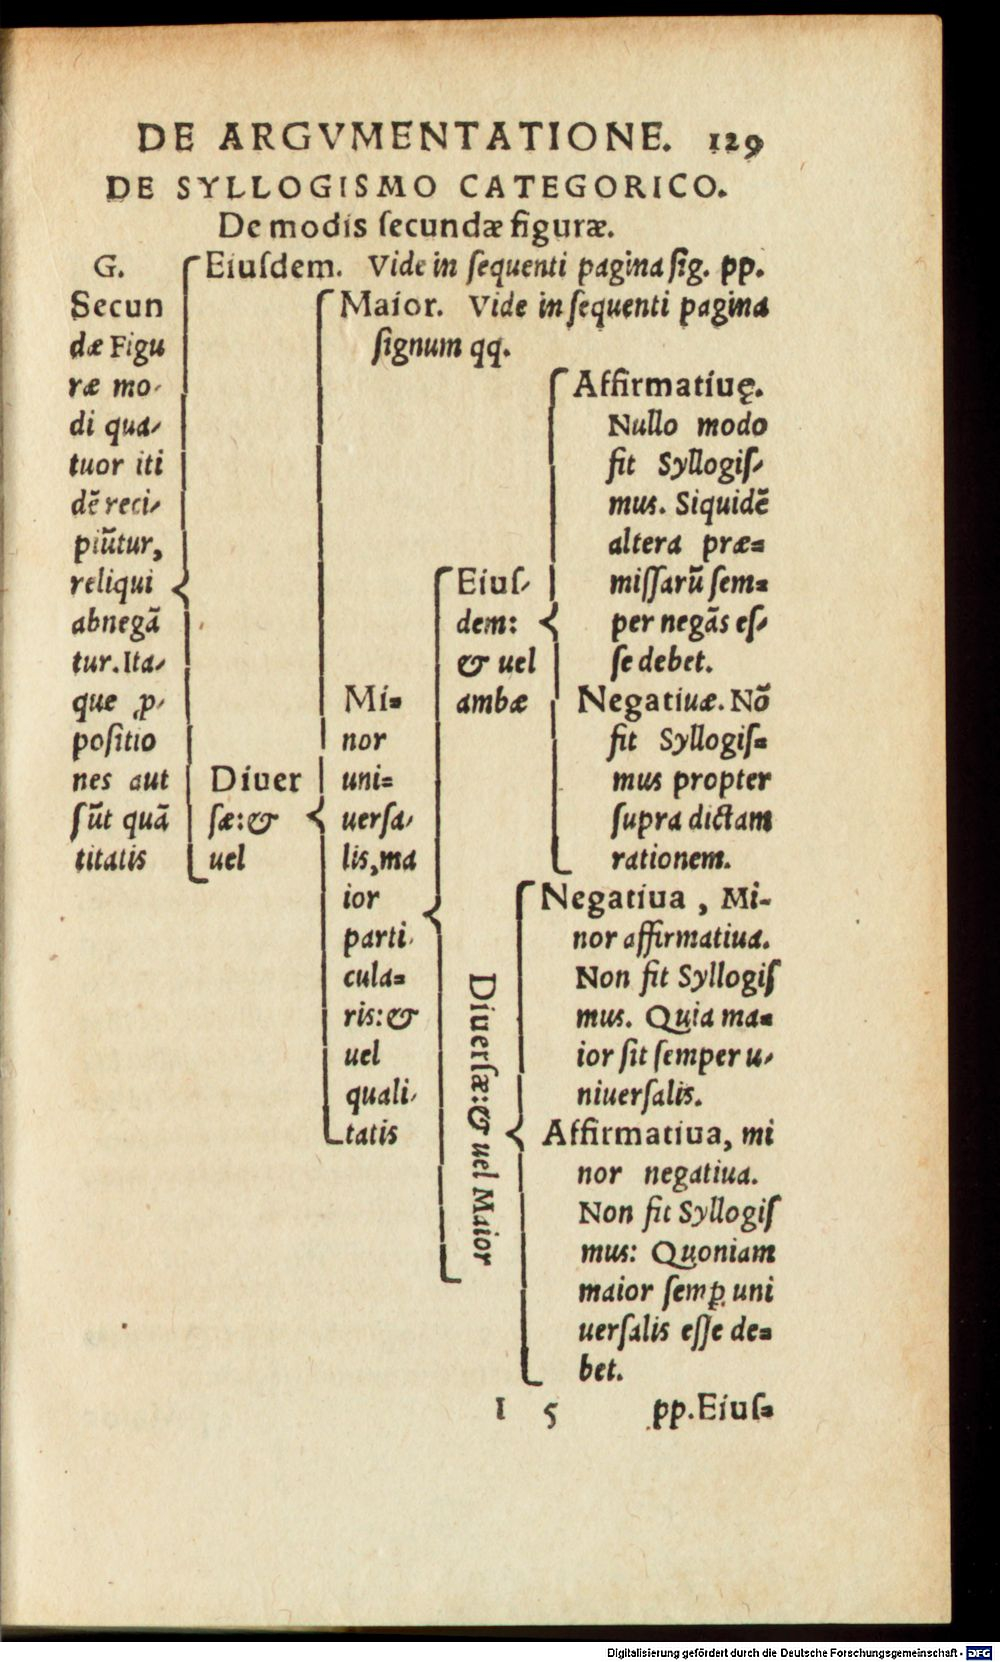 DE ARGVMENTATIONE. 129
DE SYLLOGISMO CATEGORICO.
De modis ſecundæ figuræ.
G.
Secun
dæ Figu
ræ mo-
di qua-
tuor iti
dē reci-
piūtur,
reliqui
abnegā
tur. Ita-
que ꝓ-
poſitio
nes aut
ſūt quā
titatis
Eiuſdem. Vide in ſequenti pagina ſig. pp.
Diuer
ſæ: &
uel
Maior. Vide in ſequenti pagina
ſignum qq.
Mi=
nor
uni=
uerſa-
lis, ma
ior
parti-
cula=
ris: &
uel
quali-
tatis
Eiuſ-
dem:
& uel
ambæ
Affirmatiuę.
Nullo modo
fit Syllogiſ-
mus. Siquidē
altera præ=
miſſarū ſem=
per negās eſ-
ſe debet.
Negatiuæ. Nō
fit Syllogiſ=
mus propter
ſupra dictam
rationem.
Diuerſæ: & uel Maior
Negatiua, Mi-
nor affirmatiua.
Non fit Syllogiſ
mus. Quia ma=
ior ſit ſemper u-
niuerſalis.
Affirmatiua, mi
nor negatiua.
Non fit Syllogiſ
mus: Quoniam
maior ſemꝑ uni
uerſalis eſſe de=
bet.
I 5 pp. Eiuſ=
Digitalisierung gefördert durch die Deutsche Forschungsgemeinschaft - DFG